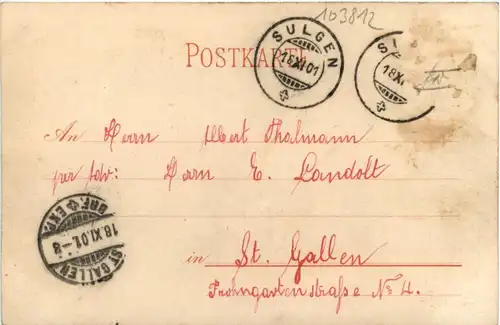 103812
POSTKARTE
SULGEN
18.XI.01
18.XI
An Herrn Albert Thalmann
per Adr: Herrn E. Landolt
in St. Gallen
Frohngartenstraße No 4.
ST. GALLEN
18.XI.01.-8
BRF. EXP.